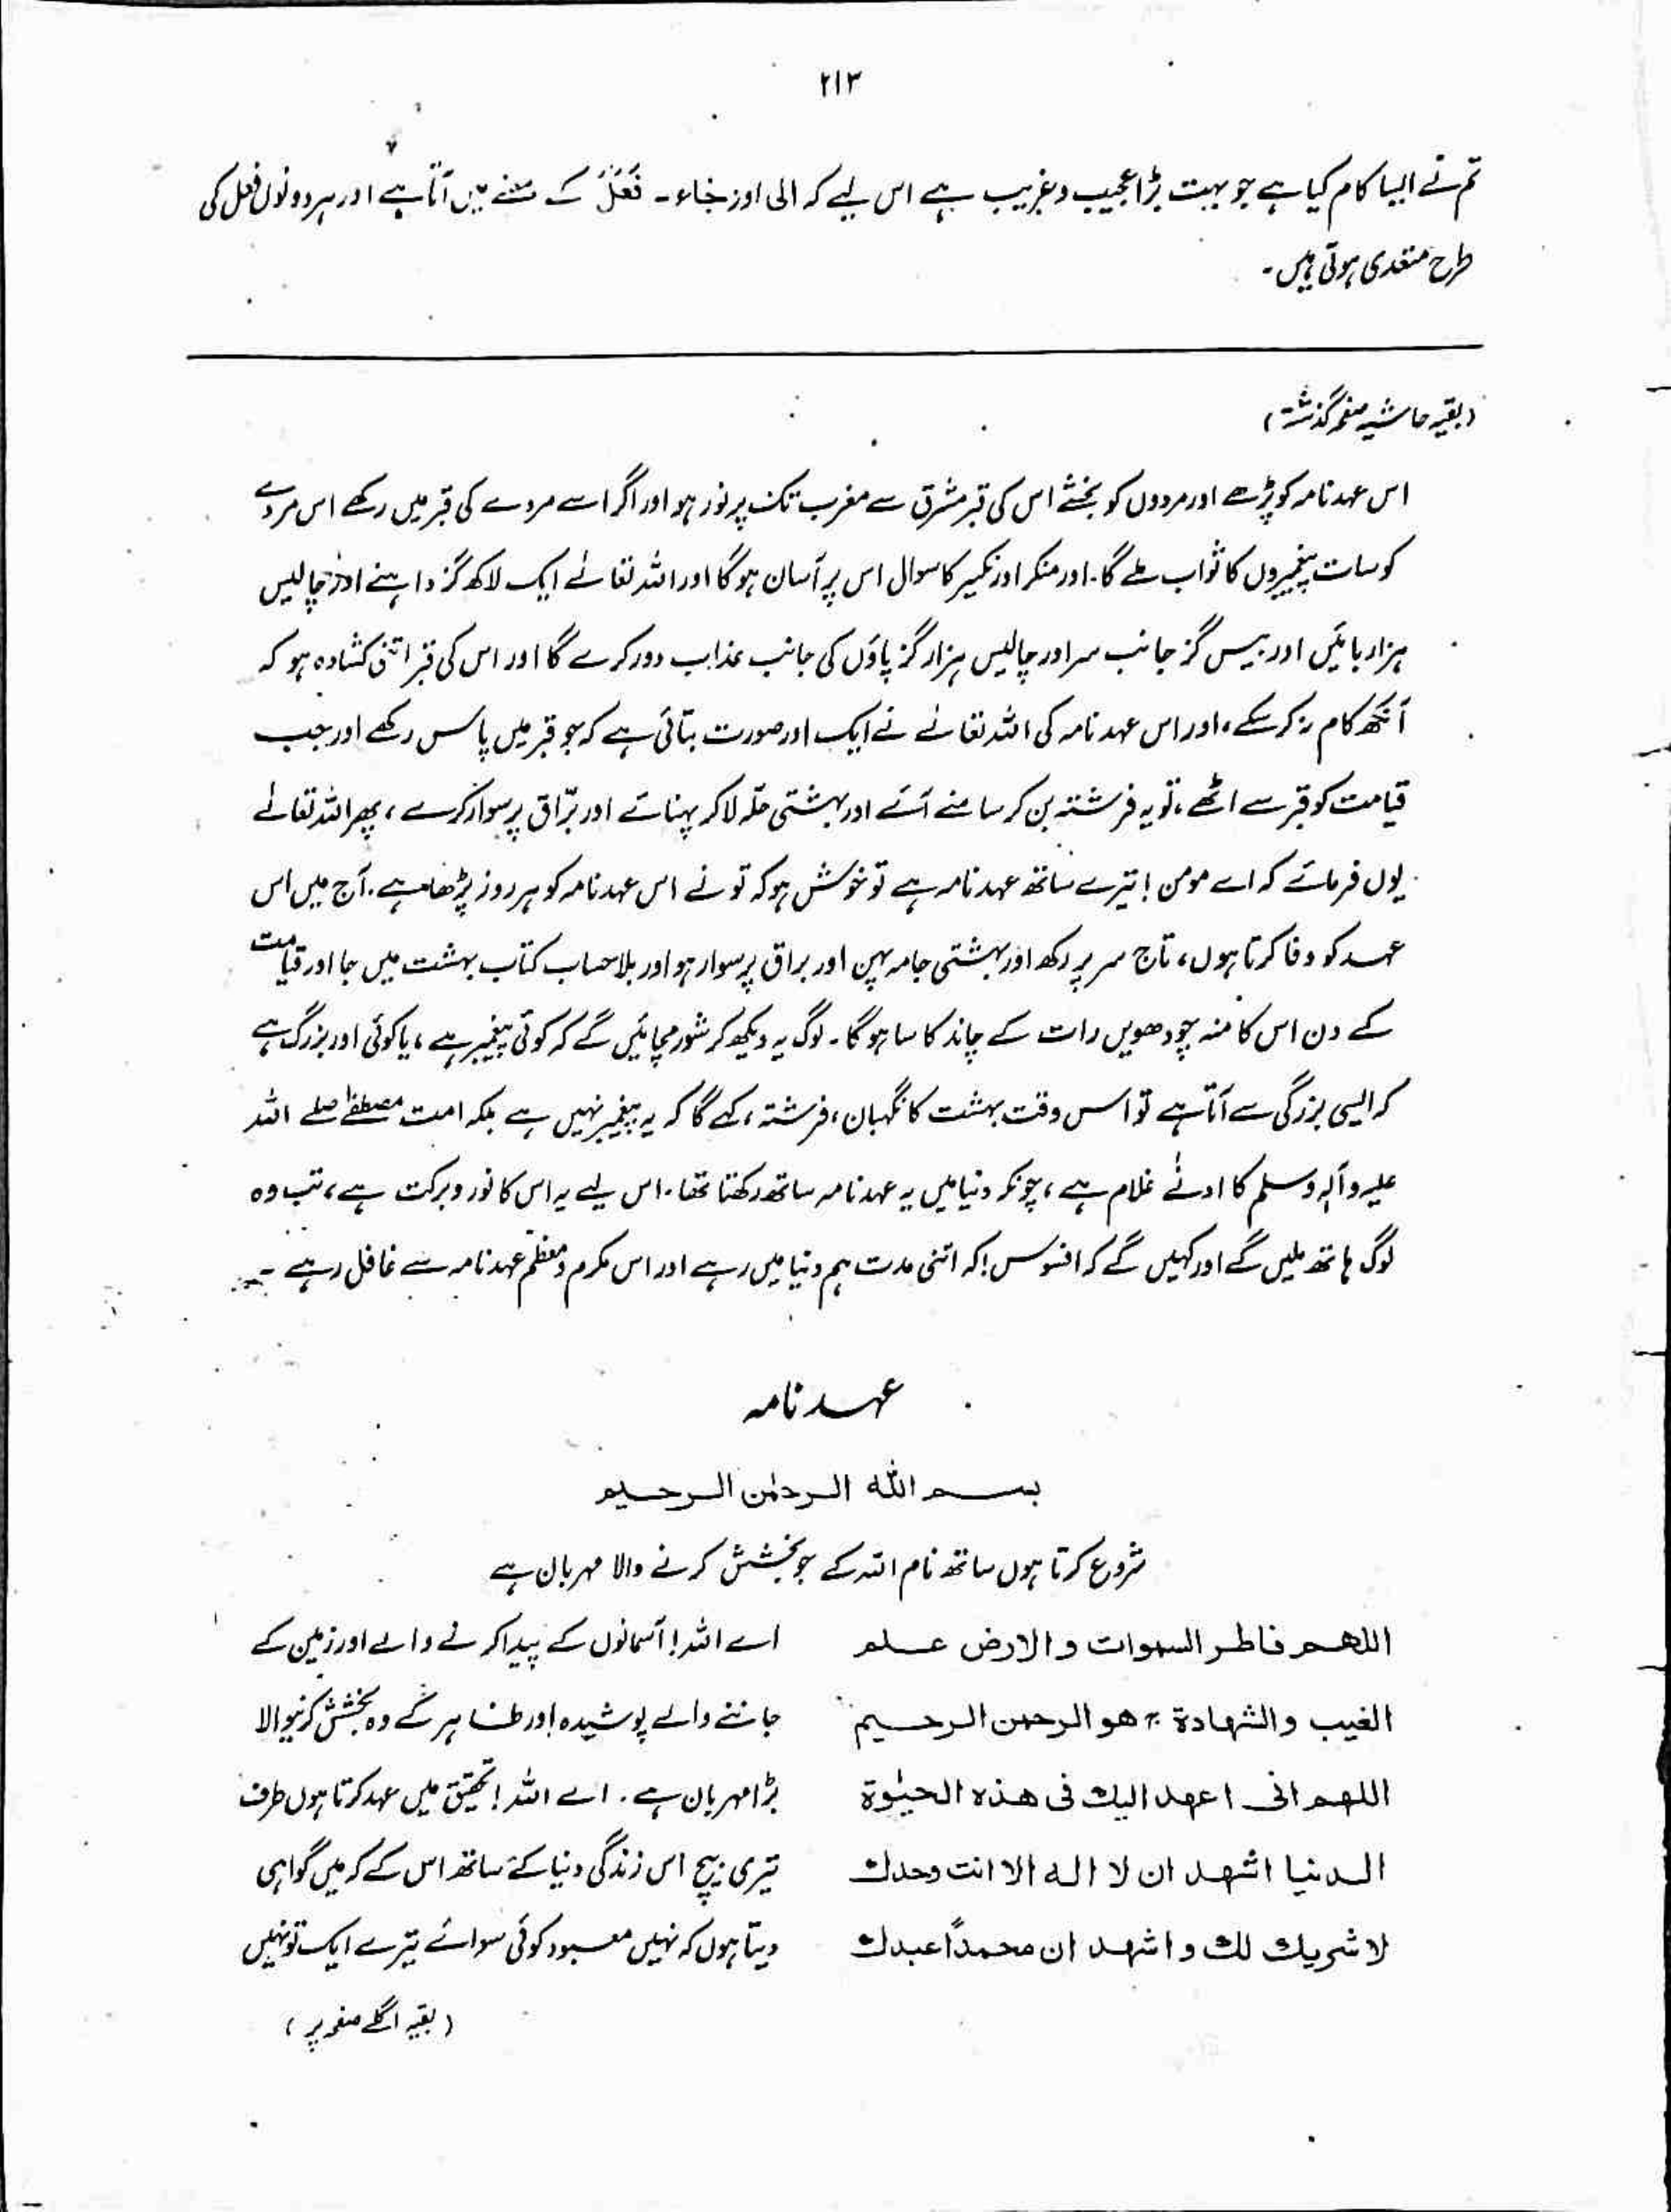 ۲۱۳
تم نے ایسا کام کیا ہے جو بہت بڑا عجیب و غریب ہے اس لیے کہ الی اور جاء۔ فَعَلَ کے معنے میں آتا ہے اور ہر دونوں فعل کی
طرح متعدی ہوتی ہیں۔
(بقیہ حاشیہ صفحہ گذشتہ)
اس عہد نامہ کو پڑھے اور مردوں کو بخشے اس کی قبر مشرق سے مغرب تک پر نور ہو اور اگر اسے مردے کی قبر میں رکھے اس مردے
کو سات پیغمبروں کا ثواب ملے گا۔ اور منکر اور نکیر کا سوال اس پر آسان ہو گا اور اللہ تعالےٰ ایک لاکھ گز داہنے اور چالیس
ہزار بائیں اور بیس گز جانب سر اور چالیس ہزار گز پاؤں کی جانب عذاب دور کرے گا اور اس کی قبر اتنی کشادہ ہو کہ
آنکھ کام نہ کر سکے، اور اس عہد نامہ کی اللہ تعالےٰ نے ایک اور صورت بتائی ہے کہ جو قبر میں پاس رکھے اور جب
قیامت کو قبر سے اٹھے، تو یہ فرشتہ بن کر سامنے آئے اور بہشتی حلّہ لا کر پہنائے اور برّاق پر سوار کرے، پھر اللہ تعالےٰ
یوں فرمائے کہ اے مومن! تیرے ساتھ عہد نامہ ہے تو خوش ہو کہ تو نے اس عہد نامہ کو ہر روز پڑھا ہے. آج میں اس
عہد کو وفا کرتا ہوں، تاج سر پر رکھ اور بہشتی جامہ پہن اور براق پر سوار ہو اور بلا حساب کتاب بہشت میں جا اور قیامت
کے دن اس کا منہ چودھویں رات کے چاند کا سا ہو گا۔ لوگ یہ دیکھ کر شور مچائیں گے کہ کوئی پیغمبر ہے، یا کوئی اور بزرگ ہے
کہ ایسی بزرگی سے آتا ہے تو اس وقت بہشت کا نگہبان، فرشتہ، کہے گا کہ یہ پیغمبر نہیں ہے بلکہ امت مصطفےٰ صلے اللہ
علیہ وآلہ وسلم کا ادنےٰ غلام ہے، چونکہ دنیا میں یہ عہد نامہ ساتھ رکھتا تھا۔ اس لیے یہ اس کا نور و برکت ہے، تب وہ
لوگ ہاتھ ملیں گے اور کہیں گے کہ افسوس! کہ اتنی مدت ہم دنیا میں رہے اور اس مکرم و معظم عہد نامہ سے غافل رہے ۔
عہد نامہ
بسم الله الرحمٰن الرحيم
شروع کرتا ہوں ساتھ نام اللہ کے جو بخشش کرنے والا مہربان ہے
اللهم فاطر السموات والارض علم
الغيب والشهادة هو الرحمن الرحيم
اللهم انى اعهد اليك فى هذه الحيٰوة
الدنيا اشهد ان لا اله الا انت وحدك
لا شريك لك واشهد ان محمداً عبدك
اے اللہ! آسمانوں کے پیدا کرنے والے اور زمین کے
جاننے والے پوشیدہ اور ظاہر کے وہ بخشش کرنیوالا
بڑا مہربان ہے. اے اللہ! تحقیق میں عہد کرتا ہوں طرف
تیری بیچ اس زندگی دنیا کے ساتھ اس کے کہ میں گواہی
دیتا ہوں کہ نہیں معبود کوئی سوائے تیرے ایک تو نہیں
(بقیہ اگلے صفحہ پر)